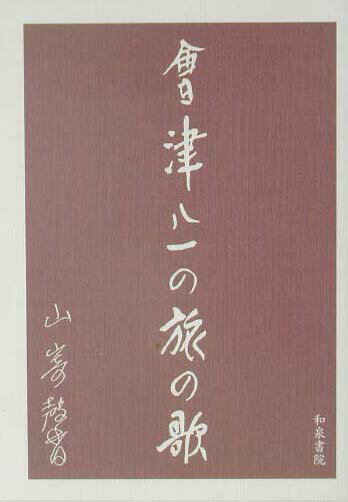 會津八一の旅の歌
山嵜馨
和泉書院